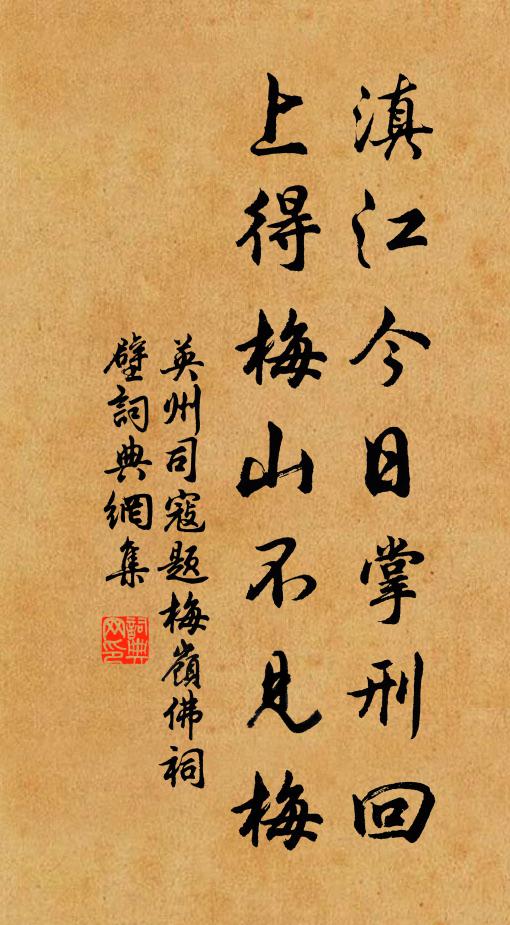 滇江今日掌刑回
上得梅山不見梅
英州司寇題梅嶺佛祠
壁詞典網集
詞典网印